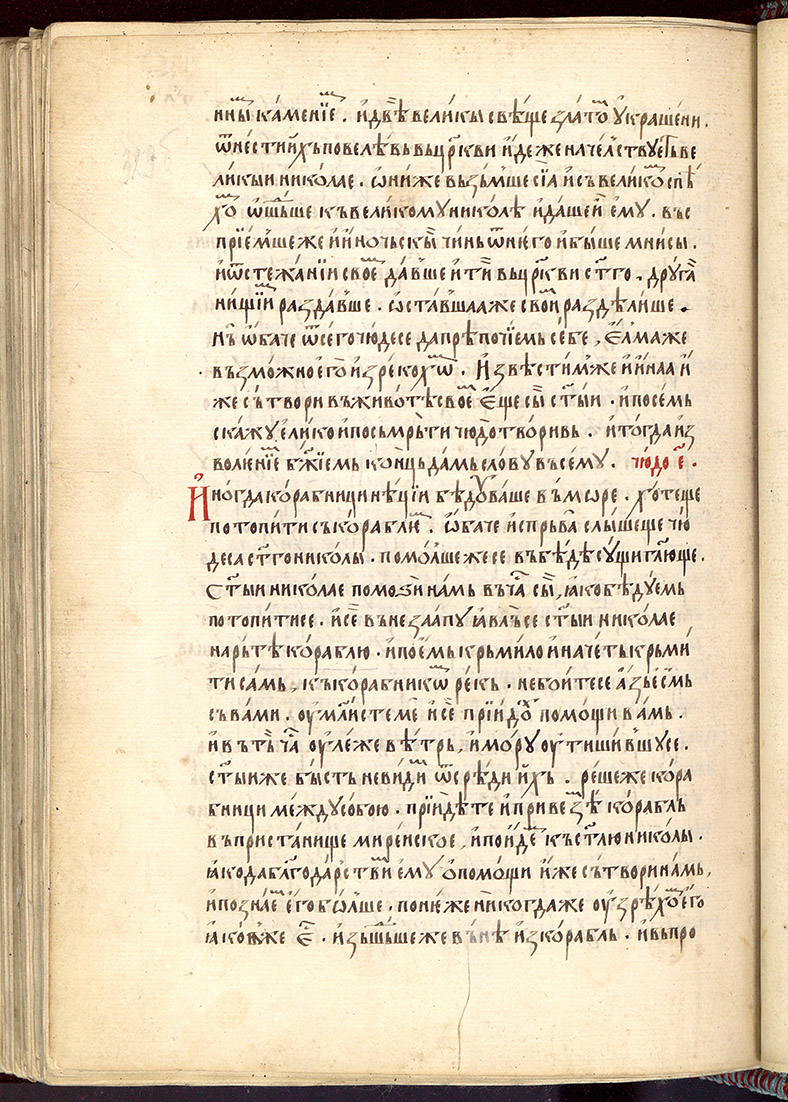 нны ка́менїе . и҆двѣ вели́кы свѣ́ще зла́том ᲂу҆краше́ни .
ѿне́стиихь повелѣ́вь вьцр҃кви и҆де́же наче́лствуеть ве
ли́кыи никола́е . ѡ҆ни́же вьзьмше сїа̀ и҆сьвели́комь спѣ́
хом ѿшьше къвели́кому нико́лѣ и҆да́шеи е҆му̀ . въс
прїе́мшеже и҆и҆но́чьскы чи́нь ѿнего̀ и҆бы́ше мни́си .
и҆ѿстежа́нїи свое да́вше и҆ти вьцр҃кви ст҃го . друга̀
ни́щїим разда́вше . ѡ҆ста́вшааже свои́м раздѣли́ше .
нь ѡ҆ба́че ѿсего̀ чю́десе дапрѣпочїе́мь се́бе , є҆лма́же
възмо́жное҆го и҆зреко́хѡм . и҆звѣсти́мже и҆и҆наа и҆
же сътвори въживо́тѣ свое є҆ще сы̀ ст҃ыи . и҆посе́мь
скажу̀ е҆ли́ко и҆посьмрьти чюдо́творивь . и҆тогда̀ и҆з
воле́нїем бж҃їемь коньць да́мь сло́ву въсе́му . чю́до є҃ .
И҆ногда̀ кора́бници нѣ́цїи бѣдо́ваше въмо́ре . хо́теще
потопи́тисъ кораблю́ . ѡ҆ба́че и҆спрьва слы́шеще чю
деса̀ ст҃го нико́лы . помо́лшежесе въбѣ́дѣ су́щи гл҃юще .
Ст҃ыи никола́е помоѕѝ на́мь въча҃ сы , ꙗ҆кобѣ́дуемь
потопи́тисе . и҆се въне́заапу ꙗ҆вль́се ст҃ыи никола́е
нарьтѣ кораблю . и҆пое́мь крьми́ло и҆наче́ть крьми́
ти са́мь , къко́рабникѡм ре́кь . небо́йтесе а҆́зь е҆́смь
съва́ми . ᲂу҆мли́стеме и҆се прїи́дохь помо́щи ва́мь .
и҆вътьча҃ ᲂу҆ле́же вѣ́трь , и҆мо́ру ᲂу҆тиши́вшусе .
ст҃ыиже бы́сть неви́дим ѿсре́ди и҆́хь . ре́шеже кора́
бници междусо́бою . прїидѣ́те и҆приве́зѣм кора́бль
въприста́нище мирѐйское , и҆по́йдем къст҃лю нико́лы .
ꙗ҆кода бл҃года́рствим е҆му̀ ѡ҆помо́щи и҆́же сътвори на́мь ,
и҆позна́ем е҆го̀ бо́лше . поне́же никогда́же ᲂу҆зрѣхом е҆го̀
ꙗ҆ковже є҃ . и҆зьшьшеже вънѣ и҆зко́рабль . и҆вьпро